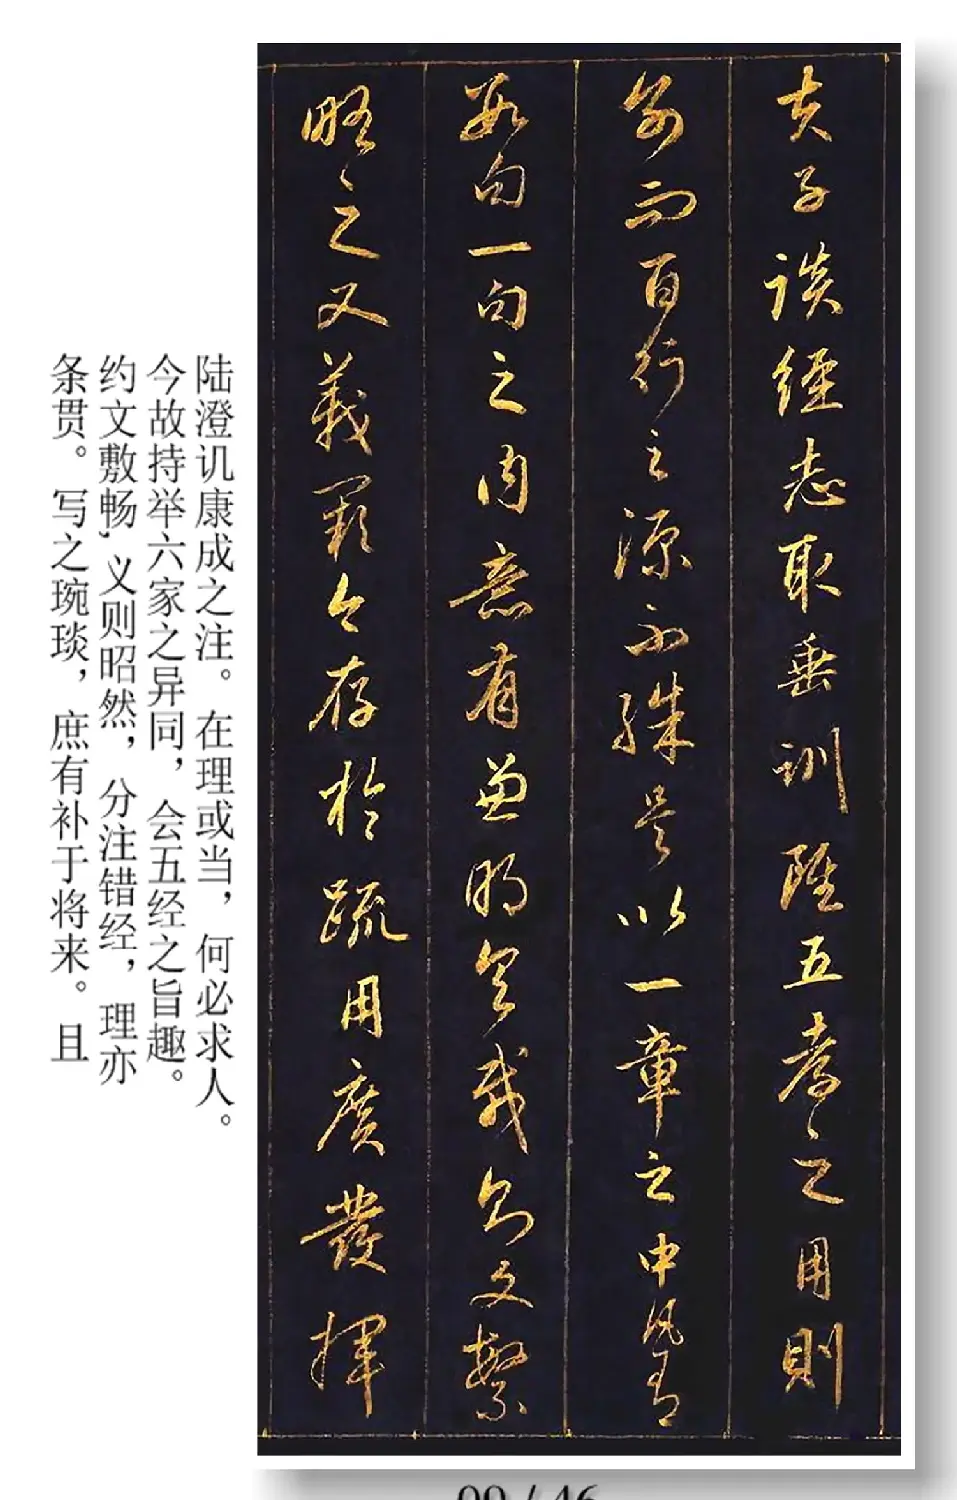 夫子談經志取垂訓雖五孝之用則
別而百行之源不殊是以一章之中凡有
數句一句之內意有兼明具載則文繁
略之又義闕今存於疏用廣發揮
陆澄讥康成之注。在理或当，何必求人。
今故持举六家之异同，会五经之旨趣。
约文敷畅，义则昭然，分注错经，理亦
条贯。写之琬琰，庶有补于将来。且